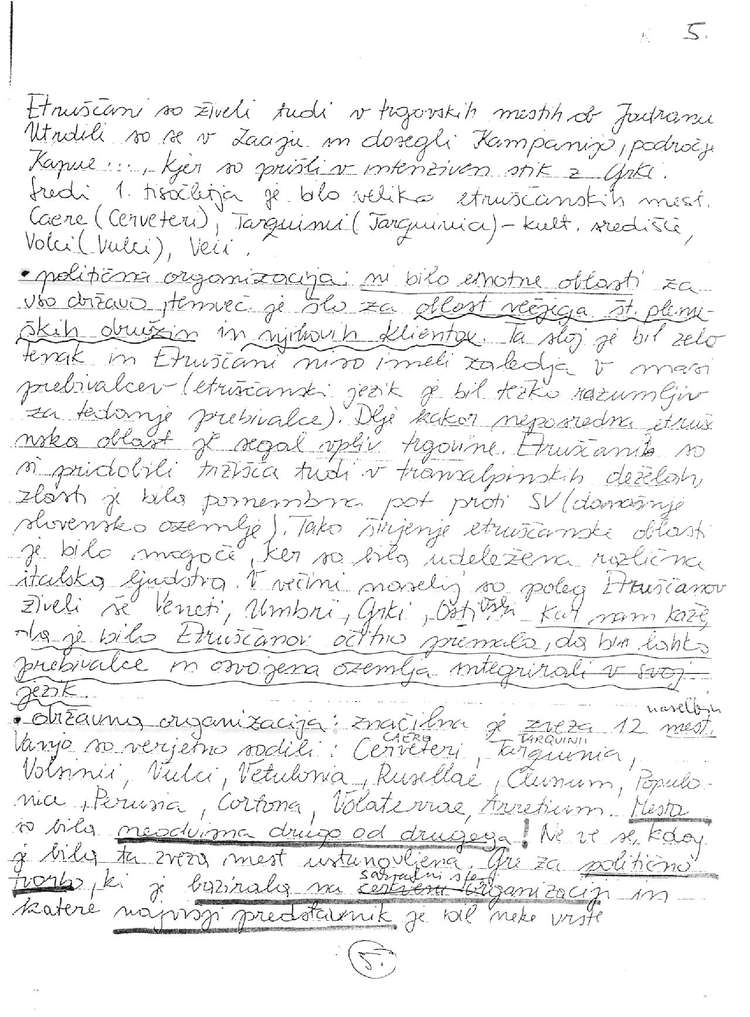 5.
Etruščani so živeli tudi v trgovskih mestih ob Jadranu
Utrdili so se v Laciju in dosegli Kampanijo, področje
Kapue ..., kjer so prišli v intenziven stik z Grki.
Sredi 1. tisočletja je bilo veliko etruščanskih mest.
Caere (Cerveteri), Tarquinii (Tarquinia) - kult. središče,
Volci (Vulci), Veii.
• politična organizacija: ni bilo enotne oblasti za
vso državo, temveč je šlo za oblast večjega št. plemi-
ških družin in njihovih klientov. Ta sloj je bil zelo
tenak in Etruščani niso imeli zaledja v masi
prebivalcev (etruščanski jezik je bil težko razumljiv
za tedanje prebivalce). Dlje kakor neposredna etruš
nska oblast je segal vpliv trgovine. Etruščani so
si pridobili tržišča tudi v transalpinskih deželah,
zlasti je bila pomembna pot proti SV (današnje
slovensko ozemlje). Tako širjenje etruščanske oblasti
je bilo mogoče, ker so bila udeležena različna
italska ljudstva. V večini naselij so poleg Etruščanov
živeli še Veneti, Umbri, Grki, kar nam kaže,
da je bilo Etruščanov očitno premalo, da bi lahko
prebivalce in osvojena ozemlja integrirali v svoj
jezik.
• državna organizacija: značilna je zveza 12 naselbin mest.
Vanjo so verjetno sodili: Cerveteri CAERE, Tarquinia TARQUINII,
Volsinii, Vulci, Vetulonia, Rusellae, Clusium, Populo-
nia, Perusia, Cortona, Volaterrae, Arretium. Mesta
so bila neodvisna drugo od drugega! Ne ve se, kdaj
je bila ta zveza mest ustanovljena. Gre za politično
tvorbo, ki je bazirala na organizaciji in
katere najvišji predstavnik je bil neke vrste
5.